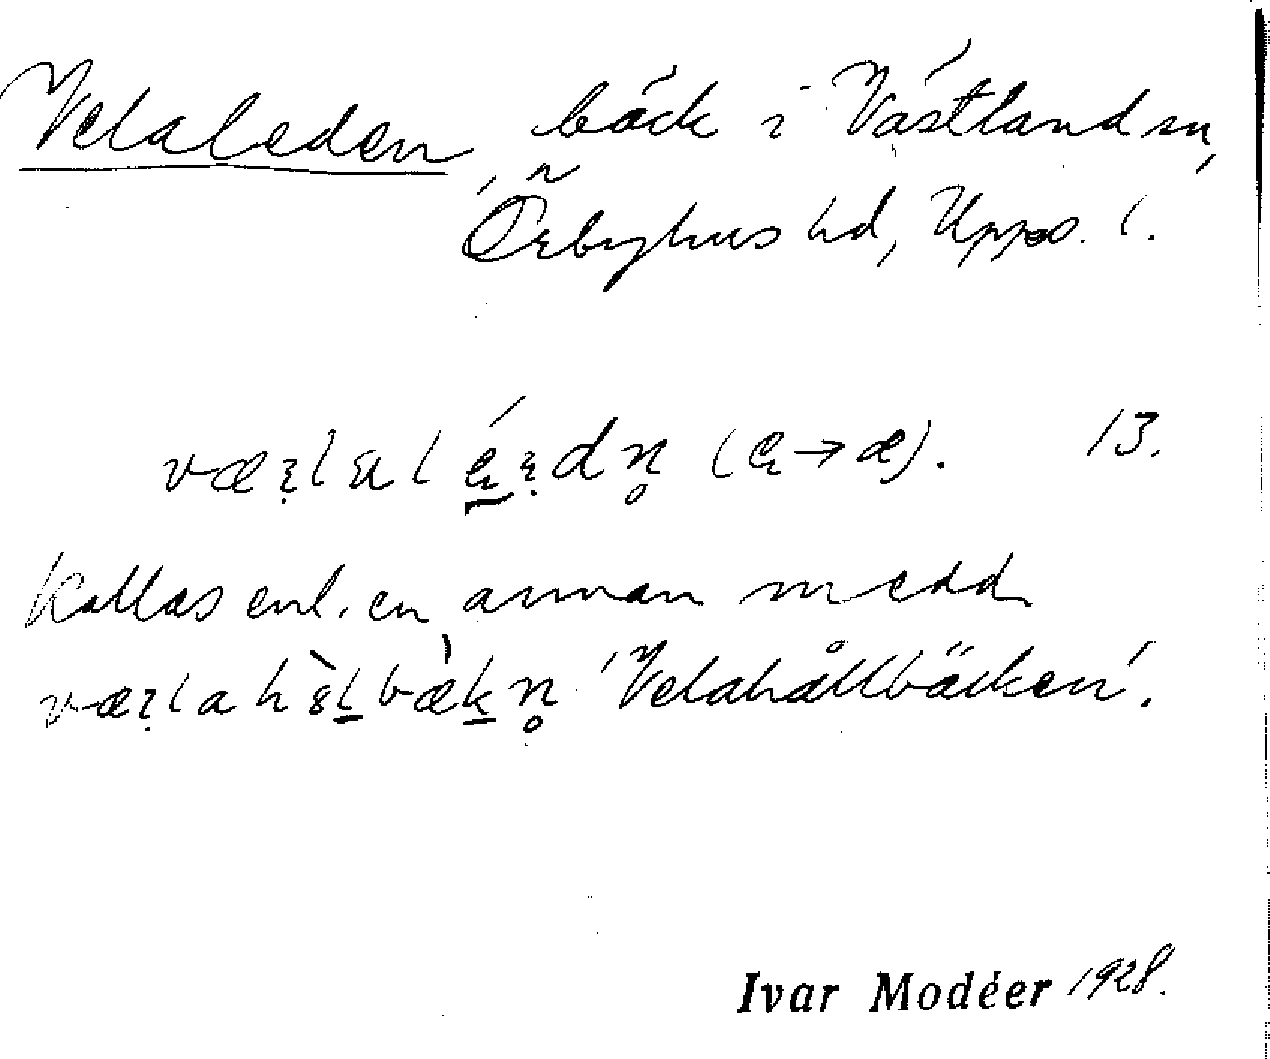 Velaleden, bäck i Västland sn,
Örbyhus hd, Upps. l.
13.
Kallas enl. en annan medd
'Velahållbäcken'.
Ivar Modéer 1928.